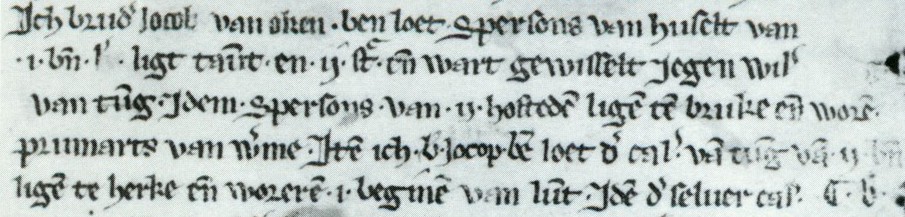 Ich brud' Jocob van oken · ben loet · spersons van husselt van
· i · bn̄ · l' · ligt tanr̄t · en · ij · st̄ · en̄ wart gewisselt Jegen wil'
van tūg · Idem · spersons · van · ij · hofstedē ligē tē bruke en̄ worē ·
primarts van w̄me · Itē ich · b' · Jocop · bē loet d' cal' · vā tūg vā · ij · bn̄
ligē te herke en̄ worerē · i · begine van lūt · Idē d' seluer cap' · C · b' ·